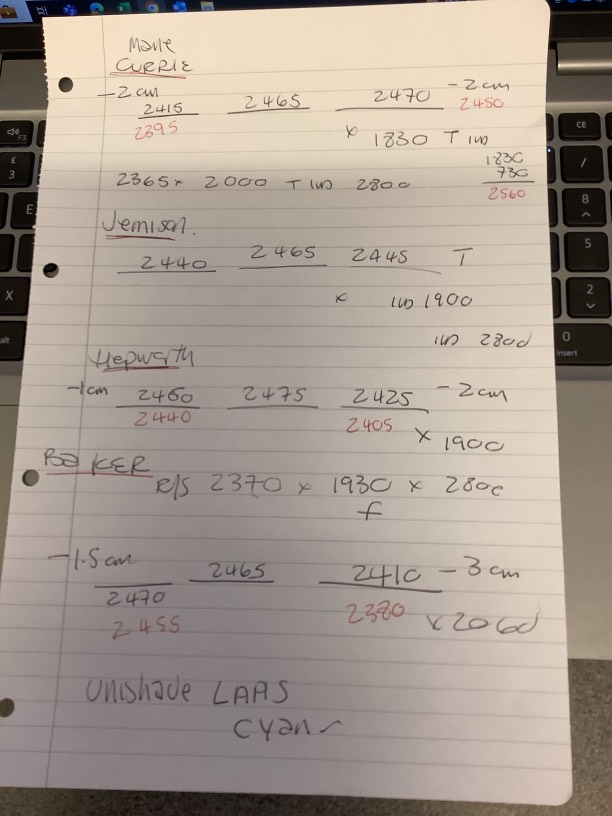 Marie
CURRIE
-2cm 2415 2465 2470 -2cm
2395 2450
x 1830 T in
1830
730
2560
2365x 2000 T in 2800
Jemison.
2440 2465 2445 T
x in 1900
in 2800
Hepworth
-1cm 2460 2475 2425 -2cm
2440 2405
x 1900
BAKER
R/S 2370 x 1930 x 2800
f
-1.5cm 2465 2410 -3cm
2470
2455 2380 x2060
Unishade LAAS
Cyan